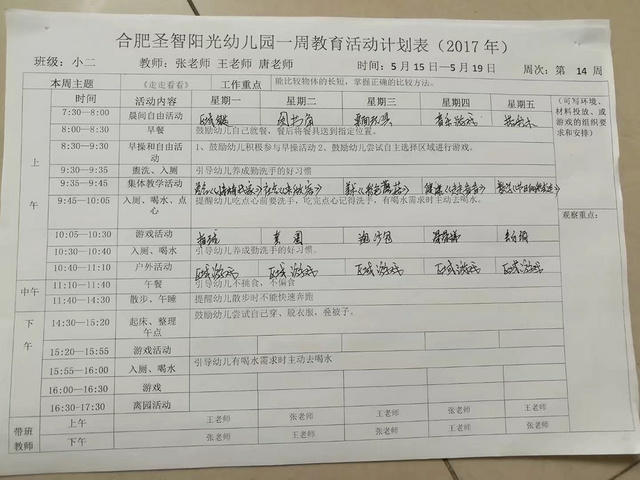 合肥圣智阳光幼儿园一周教育活动计划表（2017年）
班级：小二 教师：张老师 王老师 唐老师 时间：5月15日—5月19日 周次：第 14 周
本周主题 《走走看看》 工作重点 能比较物体的长短，掌握正确的比较方法。
时间 活动内容 星期一 星期二 星期三 星期四 星期五 （可写环境、材料投放、或游戏的组织要求和安排）
上午
7:30—8:00 晨间自由活动 图书角 桌面玩具 音乐游戏
8:00—8:30 早餐 鼓励幼儿自己就餐，餐后将餐具送到指定位置。
8:30—9:30 早操和自由活动 1、鼓励幼儿积极参与早操活动 2、鼓励幼儿尝试自主选择区域进行游戏。
9:30—9:35 盥洗、入厕 引导幼儿养成勤洗手的好习惯
9:35—9:45 集体教学活动
9:45—10:05 入厕、喝水、点心 提醒幼儿吃点心前要洗手，吃完点心记得洗手，有喝水需求时主动去喝水。
观察重点：
10:05—10:30 游戏活动
10:30—10:40 入厕、喝水 引导幼儿养成勤洗手的好习惯。
10:40—11:10 户外活动 区域游戏 区域游戏 区域游戏 区域游戏 区域游戏
中午
11:10—11:40 午餐 引导幼儿不挑食、不偏食
11:40—14:30 散步、午睡 提醒幼儿散步时不能快速奔跑
下午
14:30—15:20 起床、整理午点 鼓励幼儿尝试自己穿、脱衣服，叠被子。
15:20—15:55 游戏活动
15:55—16:00 入厕、喝水 引导幼儿有喝水需求时主动去喝水
16:00—16:30 游戏
16:30-17:30 离园活动
带班教师
上午 王老师 张老师 王老师 张老师 王老师
下午 张老师 王老师 张老师 王老师 张老师